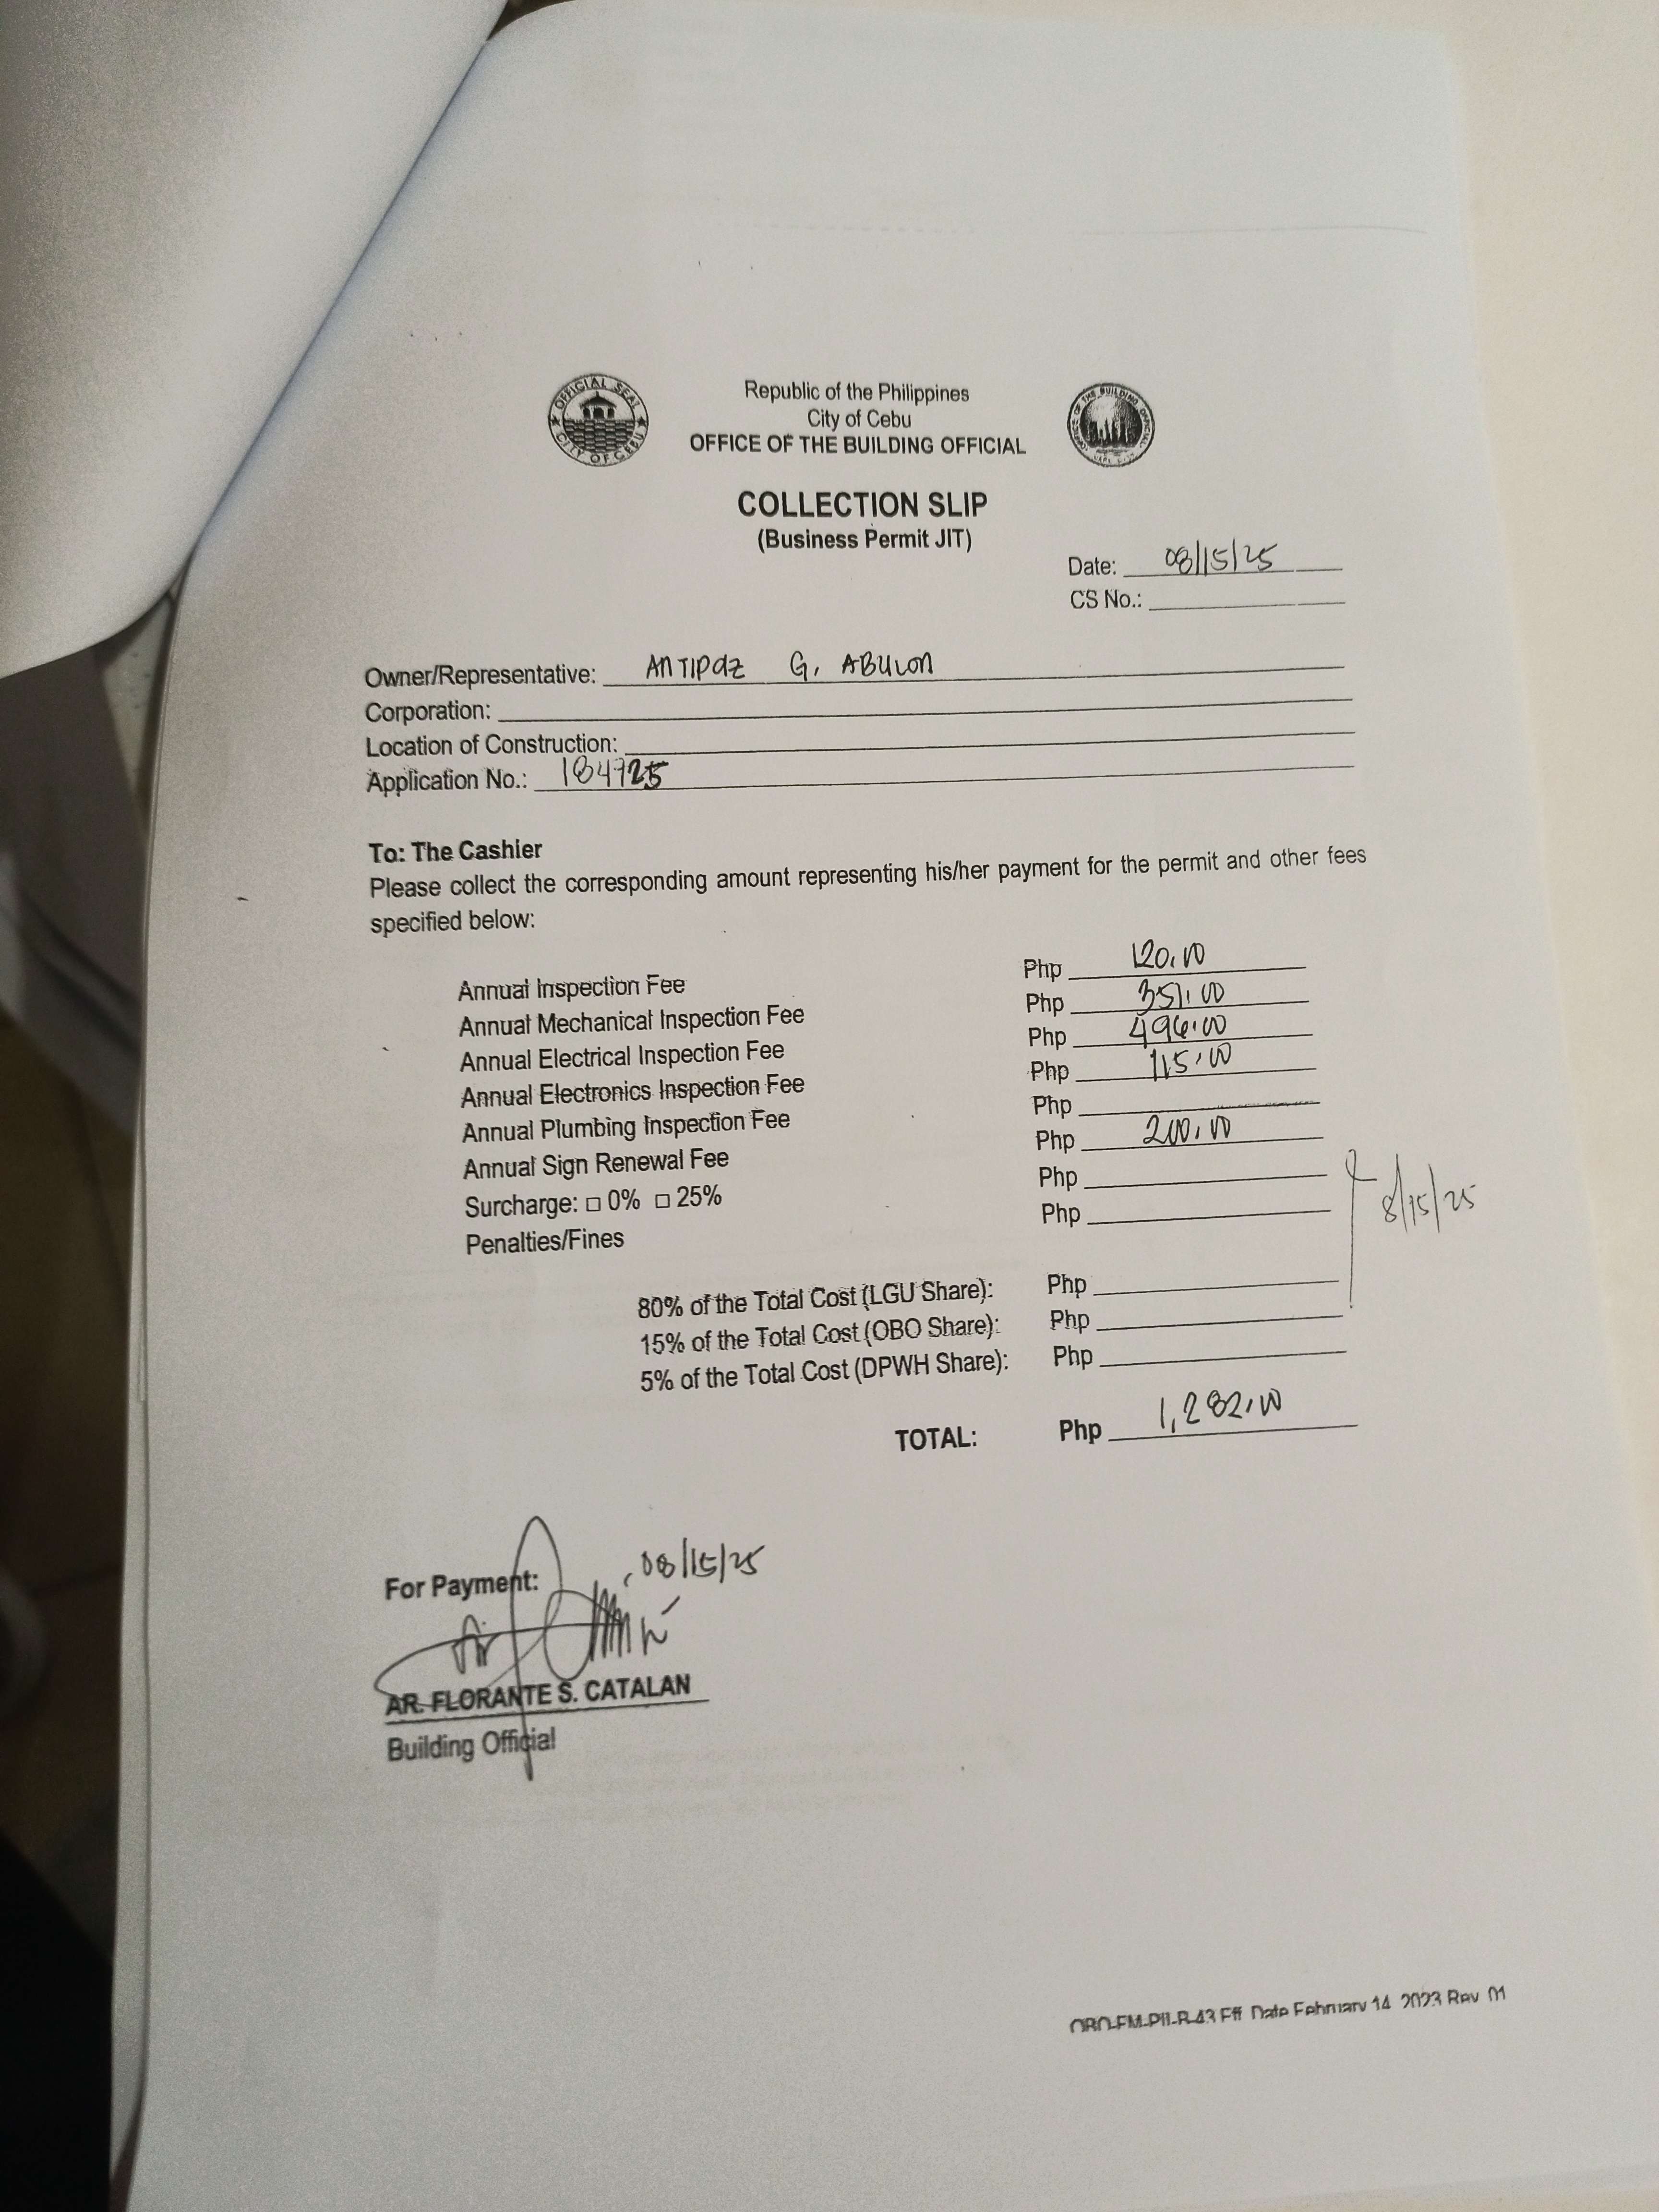 OFFICIAL SEAL
CITY OF CEBU
Republic of the Philippines
City of Cebu
OFFICE OF THE BUILDING OFFICIAL
OFFICE OF THE BUILDING OFFICIAL
COLLECTION SLIP
(Business Permit JIT)
Date: 08/15/25
CS No.:
Owner/Representative: ANTIPAZ G. ABULON
Corporation:
Location of Construction:
Application No.: 184725
To: The Cashier
Please collect the corresponding amount representing his/her payment for the permit and other fees
specified below:
Annual Inspection Fee Php 120.00
Annual Mechanical Inspection Fee Php 351.00
Annual Electrical Inspection Fee Php 496.00
Annual Electronics Inspection Fee Php 115.00
Annual Plumbing Inspection Fee Php
Annual Sign Renewal Fee Php 200.00
Surcharge: □ 0% □ 25% Php
Penalties/Fines Php
8/15/25
80% of the Total Cost (LGU Share): Php
15% of the Total Cost (OBO Share): Php
5% of the Total Cost (DPWH Share): Php
TOTAL: Php 1,282.00
For Payment: 08/15/25
AR. FLORANTE S. CATALAN
Building Official
OBO-FM-PII-B-43 Eff. Date February 14, 2023 Rev. 01